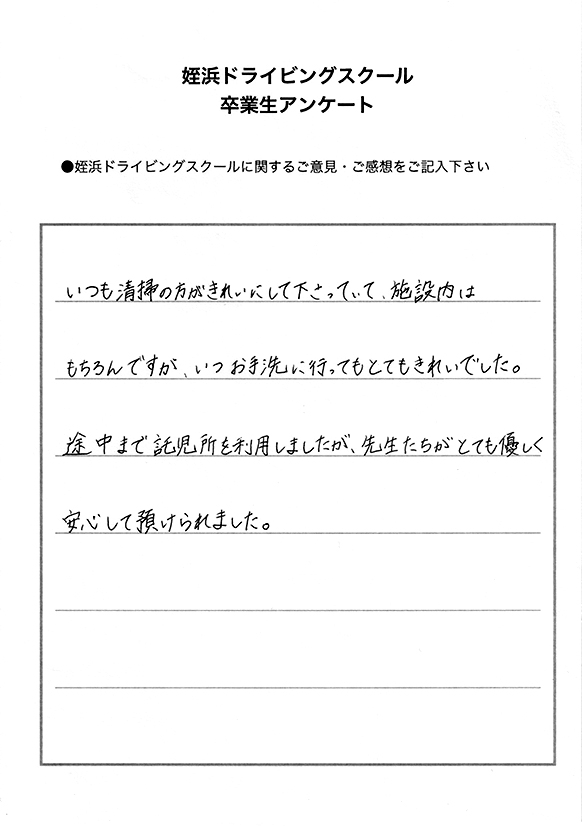 姪浜ドライビングスクール
卒業生アンケート
●姪浜ドライビングスクールに関するご意見・ご感想をご記入下さい
いつも清掃の方がきれいにして下さっていて、施設内は
もちろんですが、いつお手洗に行ってもとてもきれいでした。
途中まで託児所を利用しましたが、先生たちがとても優しく
安心して預けられました。